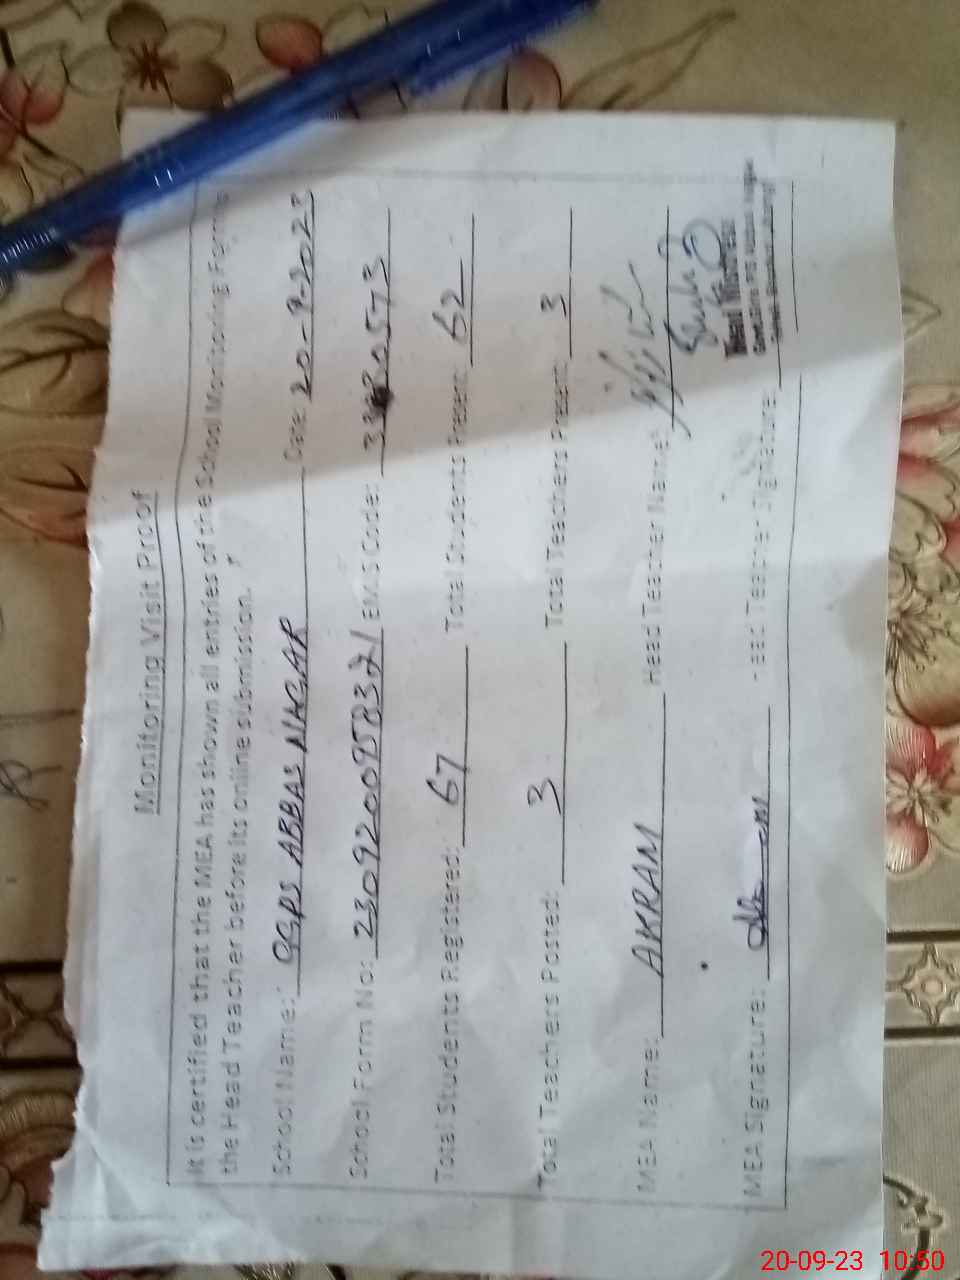 Monitoring Visit Proof
It is certified that the MEA has shown all entries of the School Monitoring Forms
the Head Teacher before its online submission.
School Name: GGPS ABBAS NAGAR Date: 20-9-2023
School Form No: EMIS Code:
Total Students Registered: 67 Total Students Present: 62
Total Teachers Posted: 3 Total Teachers Present: 3
MEA Name: AKRAM Head Teacher Name:
MEA Signature: Head Teacher Signature:
20-09-23 10:50